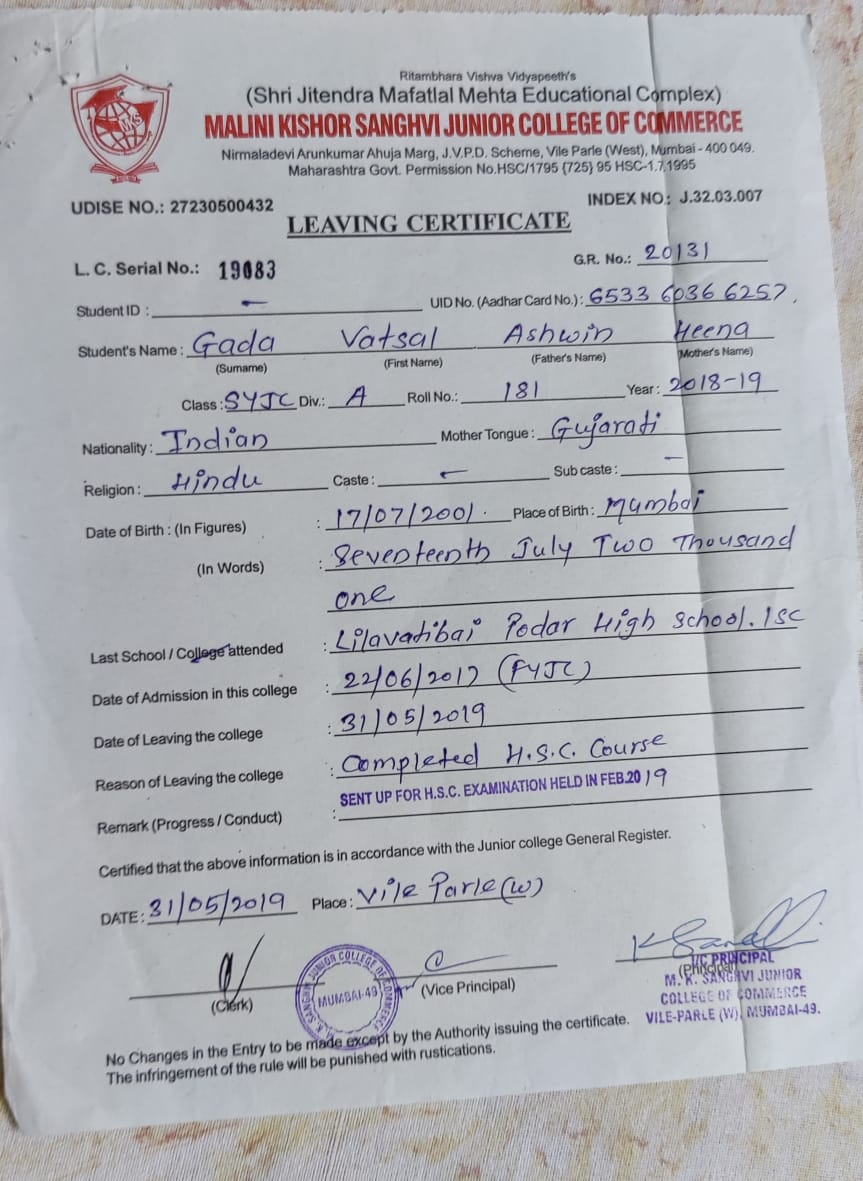 Ritambhara Vishva Vidyapeeth's
(Shri Jitendra Mafatlal Mehta Educational Complex)
MALINI KISHOR SANGHVI JUNIOR COLLEGE OF COMMERCE
Nirmaladevi Arunkumar Ahuja Marg, J.V.P.D. Scheme, Vile Parle (West), Mumbai - 400 049.
Maharashtra Govt. Permission No.HSC/1795 {725} 95 HSC-1.7.1995
UDISE NO.: 27230500432 INDEX NO.: J.32.03.007
LEAVING CERTIFICATE
L. C. Serial No.: 19083 G.R. No.: 20131
Student ID : - UID No. (Aadhar Card No.) : 6533 6036 6257.
Student's Name : Gada Vatsal Ashwin Heena
(Surname) (First Name) (Father's Name) (Mother's Name)
Class : SYJC Div.: A Roll No.: 181 Year : 2018-19
Nationality : Indian Mother Tongue : Gujarati
Religion : Hindu Caste : - Sub caste : -
Date of Birth : (In Figures) : 17/07/2001. Place of Birth : Mumbai
(In Words) : Seventeenth July Two Thousand
one
Last School / College attended : Lilavatibai Podar High School. ISC
Date of Admission in this college : 22/06/2017 (FYJC)
Date of Leaving the college : 31/05/2019
Reason of Leaving the college : Completed H.S.C. Course
SENT UP FOR H.S.C. EXAMINATION HELD IN FEB.2019
Remark (Progress / Conduct) :
Certified that the above information is in accordance with the Junior college General Register.
DATE : 31/05/2019 Place : Vile Parle (W)
(Clerk) (Vice Principal) (Principal)
I/C PRINCIPAL
M. K. SANGHVI JUNIOR
COLLEGE OF COMMERCE
VILE-PARLE (W), MUMBAI-49.
M. K. SANGHVI JUNIOR COLLEGE OF COMMERCE
MUMBAI-49
No Changes in the Entry to be made except by the Authority issuing the certificate.
The infringement of the rule will be punished with rustications.